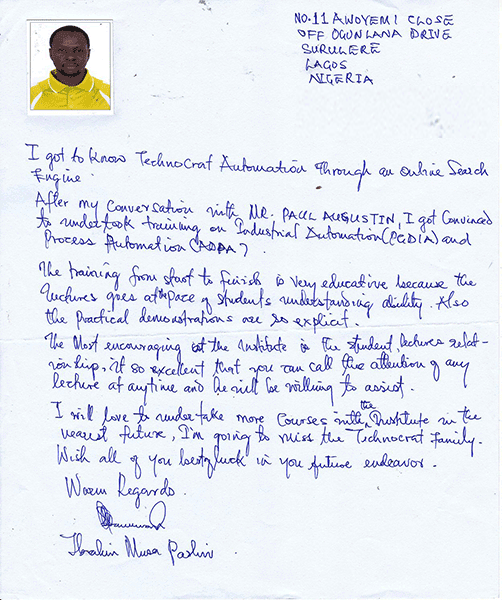 NO.11 AWOYEMI CLOSE
OFF OGUNLANA DRIVE
SURULERE
LAGOS
NIGERIA
I got to know Technocrat Automation through an online Search
Engine.
After my conversation with MR. PAUL AUGUSTIN, I got convinced
to undertook training on Industrial Automation (PGDIA) and
Process Automation (ADPA).
The training from start to finish is very educative because the
lectures goes at the pace of students understanding ability. Also
the practical demonstrations are so explicit.
The Most encouraging at the Institute is the student, lectures relat-
ionship. It so excellent that you can call the attention of any
lecture at anytime and he will be willing to assist.
I will love to undertake more courses with the Institute in the
nearest future, I'm going to miss the Technocrat Family.
Wish all of you best of luck in you future endeavor.
Warm Regards.
Ibrahim Musa